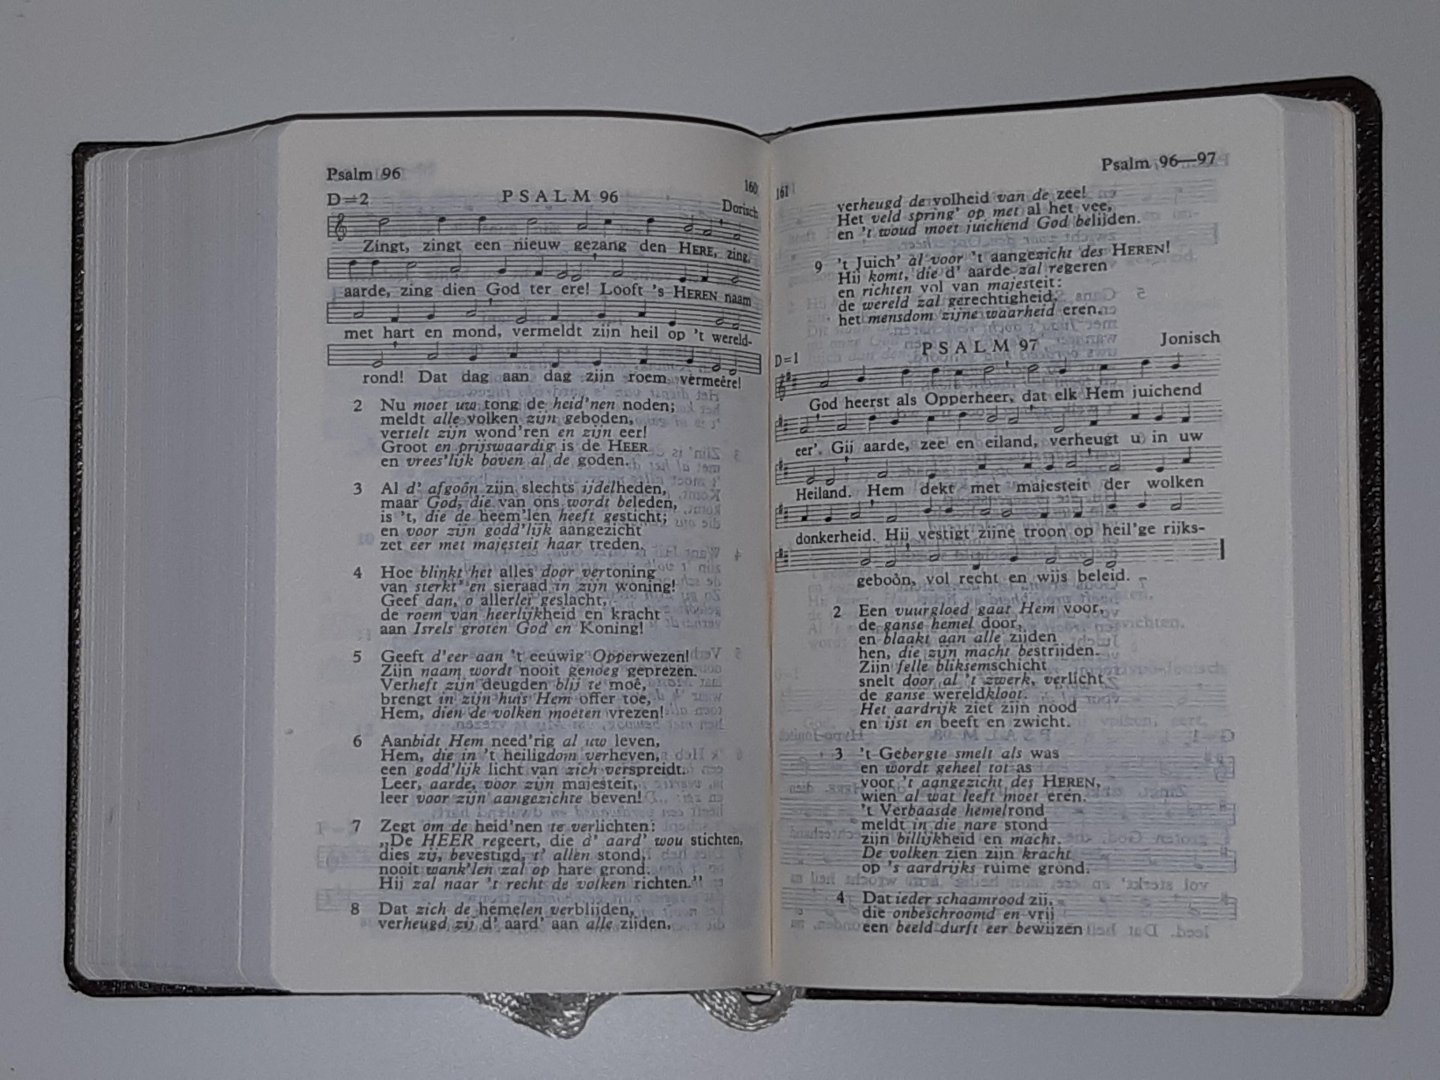 Psalm 96
160
D=2 PSALM 96 Dorisch
Zingt, zingt een nieuw gezang den HERE, zing,
aarde, zing dien God ter ere! Looft 's HEREN naam
met hart en mond, vermeldt zijn heil op 't wereld-
rond! Dat dag aan dag zijn roem vermeêre!
2 Nu moet uw tong de heid'nen noden;
meldt alle volken zijn geboden,
vertelt zijn wond'ren en zijn eer!
Groot en prijswaardig is de HEER
en vrees'lijk boven al de goden.
3 Al d' afgoôn zijn slechts ijdelheden,
maar God, die van ons wordt beleden,
is 't, die de heem'len heeft gesticht;
en voor zijn godd'lijk aangezicht
zet eer met majesteit haar treden.
4 Hoe blinkt het alles door vertoning
van sterkt' en sieraad in zijn woning!
Geef dan, o allerlei geslacht,
de roem van heerlijkheid en kracht
aan Isrels groten God en Koning!
5 Geeft d'eer aan 't eeuwig Opperwezen!
Zijn naam wordt nooit genoeg geprezen.
Verheft zijn deugden blij te moê,
brengt in zijn huis Hem offer toe,
Hem, dien de volken moeten vrezen!
6 Aanbidt Hem need'rig al uw leven,
Hem, die in 't heiligdom verheven,
een godd'lijk licht van zich verspreidt.
Leer, aarde, voor zijn majesteit,
leer voor zijn aangezichte beven!
7 Zegt om de heid'nen te verlichten:
„De HEER regeert, die d' aard' wou stichten,
dies zij, bevestigd, t' allen stond,
nooit wank'len zal op hare grond.
Hij zal naar 't recht de volken richten."
8 Dat zich de hemelen verblijden,
verheugd zij d' aard' aan alle zijden,
Psalm 96—97
161
verheugd de volheid van de zee!
Het veld spring' op met al het vee,
en 't woud moet juichend God belijden.
9 't Juich' àl voor 't aangezicht des HEREN!
Hij komt, die d' aarde zal regeren
en richten vol van majesteit:
de wereld zal gerechtigheid,
het mensdom zijne waarheid eren.
D=1 PSALM 97 Jonisch
God heerst als Opperheer, dat elk Hem juichend
eer'. Gij aarde, zee en eiland, verheugt u in uw
Heiland. Hem dekt met majesteit der wolken
donkerheid. Hij vestigt zijne troon op heil'ge rijks-
geboôn, vol recht en wijs beleid.
2 Een vuurgloed gaat Hem voor,
de ganse hemel door,
en blaakt aan alle zijden
hen, die zijn macht bestrijden.
Zijn felle bliksemschicht
snelt door al 't zwerk, verlicht
de ganse wereldkloot.
Het aardrijk ziet zijn nood
en ijst en beeft en zwicht.
3 't Gebergte smelt als was
en wordt geheel tot as
voor 't aangezicht des HEREN,
wien al wat leeft moet eren.
't Verbaasde hemelrond
meldt in die nare stond
zijn billijkheid en macht.
De volken zien zijn kracht
op 's aardrijks ruime grond.
4 Dat ieder schaamrood zij,
die onbeschroomd en vrij
een beeld durft eer bewijzen